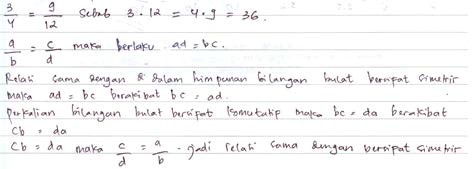 3/4 = 9/12 sebab 3 · 12 = 4 · 9 = 36.
a/b = c/d maka berlaku ad = bc.
Relasi sama dengan & dalam himpunan bilangan bulat bersifat simetrir
maka ad = bc berakibat bc = ad.
perkalian bilangan bulat bersifat komutatip maka bc = da berakibat
cb = da
cb = da maka c/d = a/b . jadi relasi sama dengan bersipat simetrir